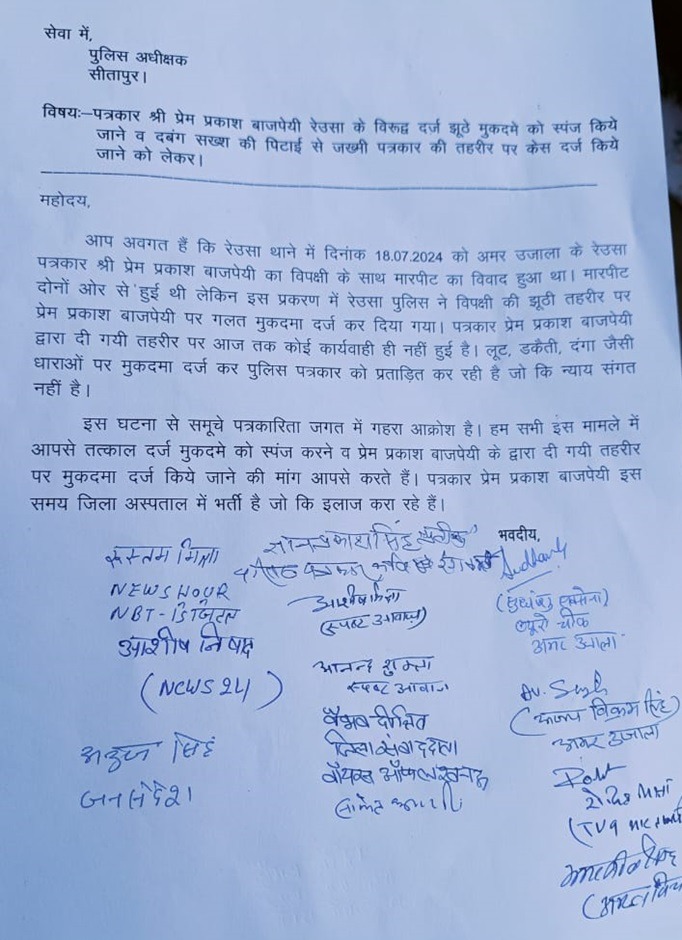 सेवा में,
पुलिस अधीक्षक
सीतापुर।
विषयः–पत्रकार श्री प्रेम प्रकाश बाजपेयी रेउसा के विरूद्व दर्ज झूठे मुकदमे को स्पंज किये
जाने व दबंग सख्श की पिटाई से जख्मी पत्रकार की तहरीर पर केस दर्ज किये
जाने को लेकर।
महोदय,
आप अवगत हैं कि रेउसा थाने में दिनांक 18.07.2024 को अमर उजाला के रेउसा
पत्रकार श्री प्रेम प्रकाश बाजपेयी का विपक्षी के साथ मारपीट का विवाद हुआ था। मारपीट
दोनों ओर से हुई थी लेकिन इस प्रकरण में रेउसा पुलिस ने विपक्षी की झूठी तहरीर पर
प्रेम प्रकाश बाजपेयी पर गलत मुकदमा दर्ज कर दिया गया। पत्रकार प्रेम प्रकाश बाजपेयी
द्वारा दी गयी तहरीर पर आज तक कोई कार्यवाही ही नहीं हुई है। लूट, डकैती, दंगा जैसी
धाराओं पर मुकदमा दर्ज कर पुलिस पत्रकार को प्रताड़ित कर रही है जो कि न्याय संगत
नहीं है।
इस घटना से समूचे पत्रकारिता जगत में गहरा आक्रोश है। हम सभी इस मामले में
आपसे तत्काल दर्ज मुकदमे को स्पंज करने व प्रेम प्रकाश बाजपेयी के द्वारा दी गयी तहरीर
पर मुकदमा दर्ज किये जाने की मांग आपसे करते हैं। पत्रकार प्रेम प्रकाश बाजपेयी इस
समय जिला अस्पताल में भर्ती है जो कि इलाज करा रहे हैं।
भवदीय,
NEWS HOUR
NBT-डिजिटल
आशीष निषाद
(NEWS 24)
सिंह
जनसंदेश
(स्पष्ट आवाज)
आनन्द शुक्ला
स्पष्ट आवाज
वैभव दीक्षित
जिला संवाददाता
ब्यूरो चीफ
अमर उजाला
विक्रम सिंह)
अमर उजाला
(TV9